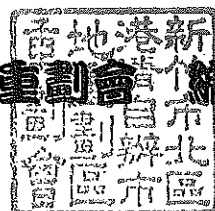 新竹市北區
港自辦市
地重劃區
重劃會
重劃會